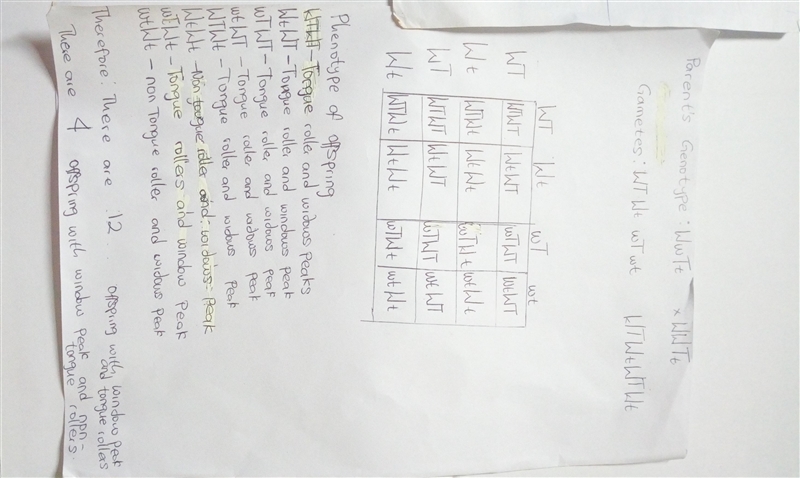 Parent's Genotype: WwTt x WWTt
Gametes: WT Wt wT wt WT Wt WT Wt
WT Wt wT wt
WT WTWT WtWT wTWT wtWT
Wt WTWt WtWt wTWt wtWt
WT WTWT WtWT wTWT wtWT
Wt WTWt WtWt wTWt wtWt
Phenotype of offspring
WTWT - Tongue roller and widows peaks
WtWT - Tongue roller and windows peak
wTWT - Tongue roller and widows peak
wtWT - Tongue roller and widows peak
WTWt - Tongue roller and widows peak
WtWt - Non tongue roller and widows peak
wTWt - Tongue rollers and window peak
wtWt - non Tongue roller and widows peak
Therefore: There are 12 offspring with window peak
and tongue rollers
There are 4 offspring with window peak and non-
tongue rollers.